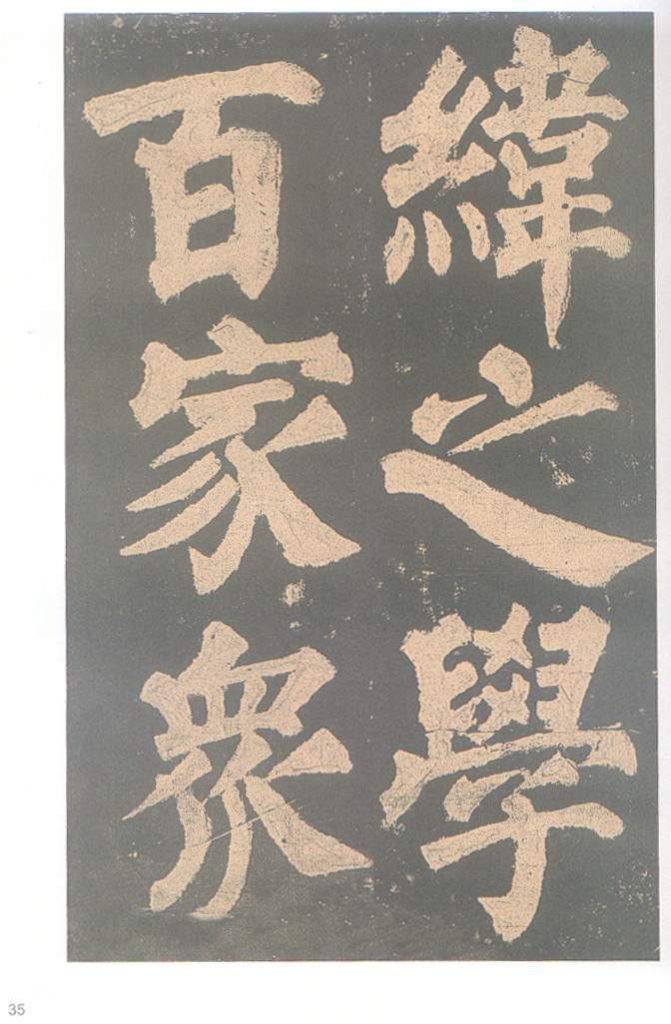 緯之學
百家衆
35